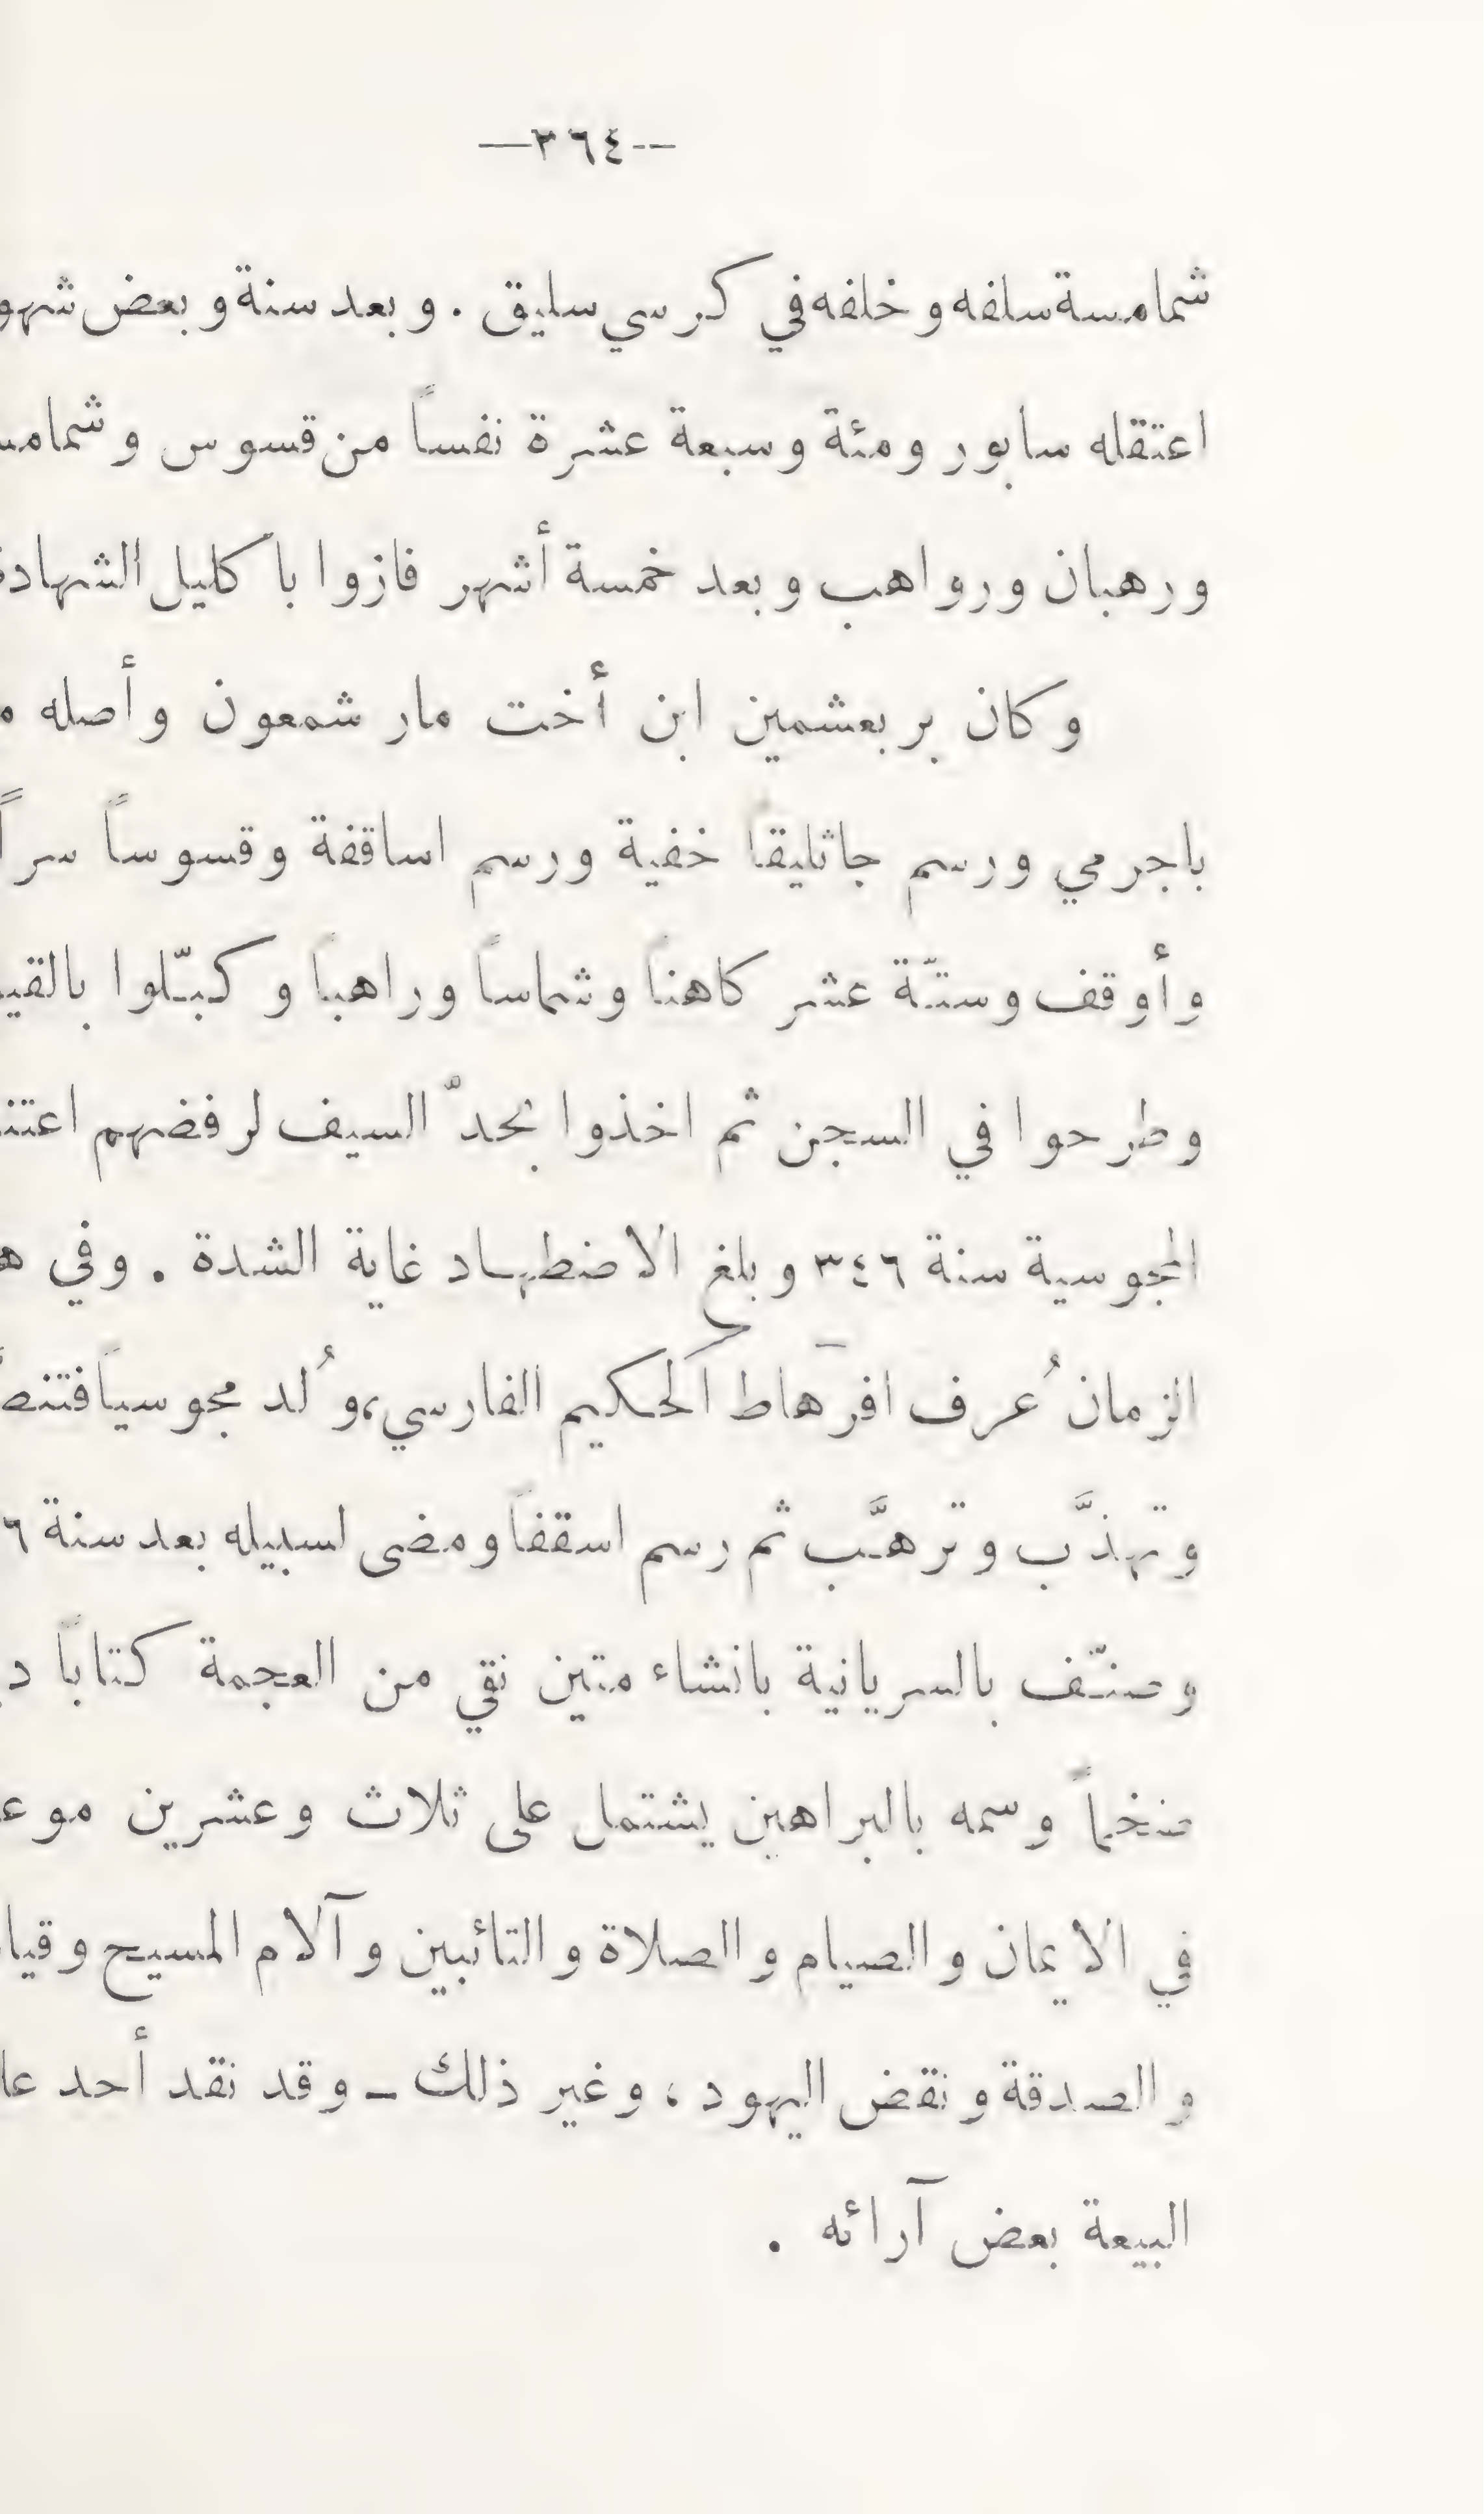 --٣٦٤—
شمامسة سلفه وخلفه في كرسي سليق . وبعد سنة وبعض
اعتقله سابور ومئة وسبعة عشرة نفساً من قسوس
ورهبان ورواهب وبعد خمسة أشهر فازوا باكليل
وكان بربعشمين ابن أخت مار شمعون وأصله
باجرمي ورسم جاثليقاً خفية ورسم اساقفة وقسوساً سراً
وأوقف وستّة عشر كاهناً وشماساً وراهباً وكبّلوا
وطرحوا في السجن ثم اخذوا بحدّ السيف لرفضهم
المجوسية سنة ٣٤٦ وبلغ الاضطهاد غاية الشدة . وفي
الزمان عُرف افرهاط الحكيم الفارسي، وُلد مجوسياً
وتهذَّب وترهَّب ثم رسم اسقفاً ومضى لسبيله بعد سنة
وصنّف بالسريانية بانشاء متين نقي من العجمة كتاباً
ضخماً وسمه بالبراهين يشتمل على ثلاث وعشرين
في الايمان والصيام والصلاة والتائبين وآلام المسيح
والصدقة ونقض اليهود ، وغير ذلك ـ وقد نقد أحد
البيعة بعض آرائه .